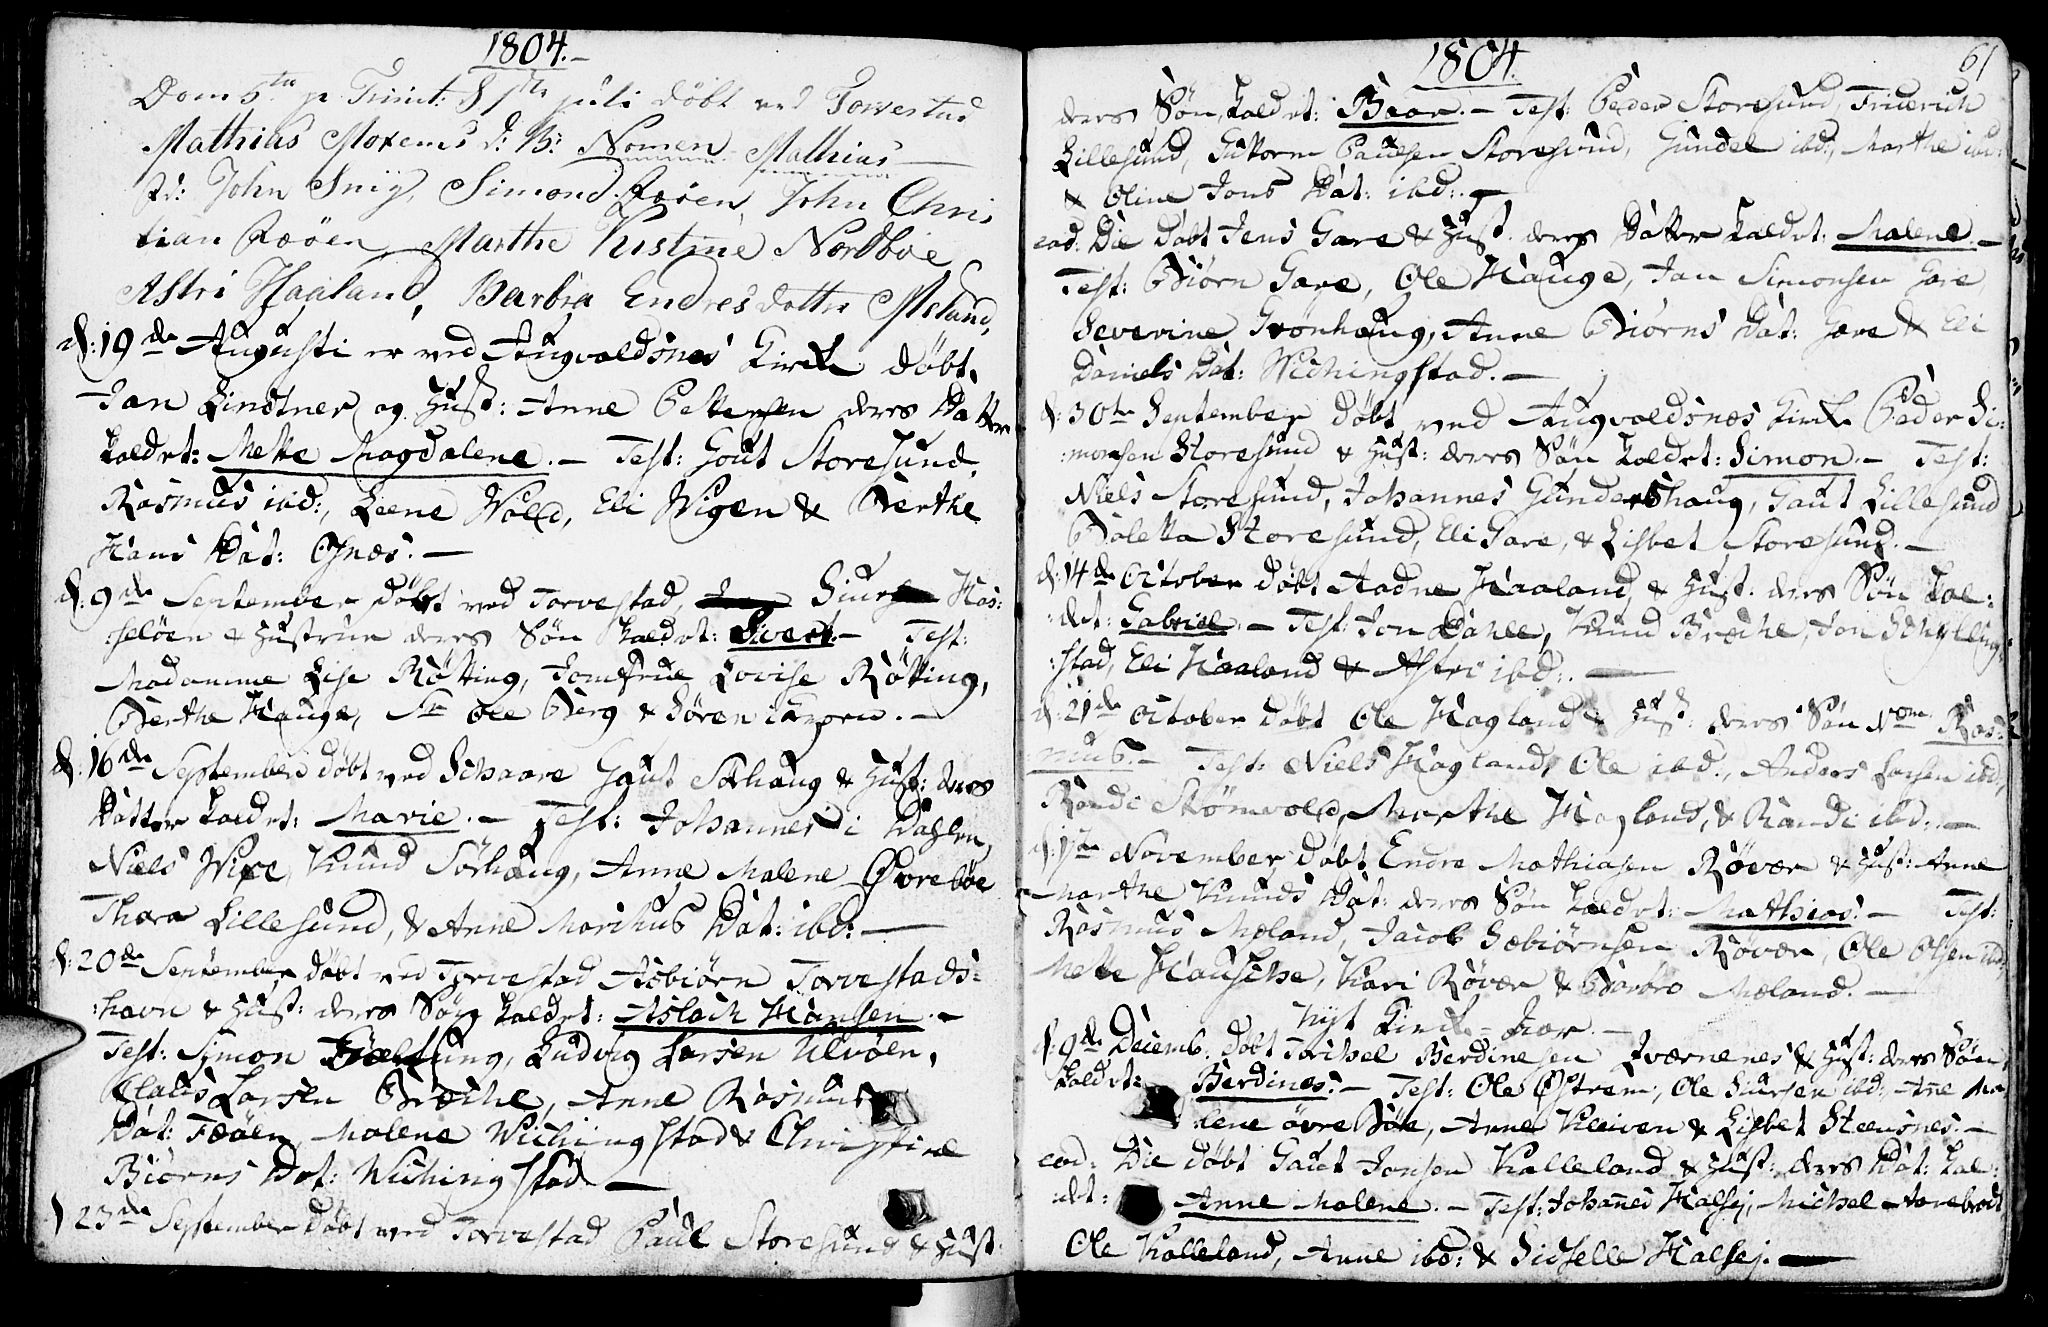 1804.-
Dom 5te p. Trinit: 8 Juli döbt ved Torvestad
Mathias Moxenes d: B: Nomen Mathias
Fd: John Snig, Simond Røsen, John Chris
tian Feøen, Marthe Kristine Nordböe
Astri Haaland, Barbra Endresdotter Meland,
d: 19de Augusti er ved Augvaldsnes Kirke döbt,
Jan Lindtner og Hust: Anne Pettersen deres Datter
kaldet: Mette Magdalene. - Test: Gout Storesund,
Rasmus ibd:, Leene Wold, Eli Wigen & Berthe
Hans Dat: Osnæs. -
d: 9de September döbt ved Torvestad, Siurs Has:
:seløen & Hustrue deres Sön kaldet: Sivert - Test:
Madamme Lise Røtting, Jomfrue Lovise Røtting,
Berthe Hauge, Sr Ole Berg & Sören
d: 16de September döbt ved Schaare Gaut Sörhaug & Hust: deres
Datter kaldet: Marie. - Test: Johannes i Dahlen,
Niels Wise, Knud Sörhaug, Anne Malene Øvreböe
Thora Lillesund, & Anne Marikus Dat: ibd: -
d: 20de September döbt ved Torvestad Asbiörn Torvestads:
:havn & Hust: deres Sön kaldet: Aslach Hansen. -
Test: Simon, Ludvig Larsen Ulvöen,
Claus Larsen Bræche, Anne Rasmus
Dat: Feøen, Malene Wichingstad & Christine
Biörns Dat: Wichingstad -
d 23de September döbt ved Torvestad Paul Storesund & Hust:
1804.
61
deres Sön, kaldet: Beor. - Test: Peder Storesund, Friderich
Lillesund, Guttorm Paulsen Storesund, Gundel ibd:, Marthe ibd:
& Oline Jons Dat: ibd: -
eod: Die döbt Jens Gare & Hust. deres Datter kaldet: Malene. -
Test: Biörn Gare, Ole Hauge, Jan Simonsen Gare,
Severine Grönhaug, Anne Biörns Dat: Gare & Eli
Daniels Dat: Wichingstad. -
d: 30te September döbt ved Augvaldsnæs Kirke Peder Si:
:monsen Storesund & Hust: deres Sön kaldet: Simon. - Test:
Niels Storesund, Johannes Gundershaug, Gaut Lillesund
Boletta Storesund, Eli Gare, & Lisbet Storesund. -
d: 14de October döbt Aadne Haaland, & Hust. deres Sön kal:
:det: Gabriel. - Test: Jon Dahle, Knud Bræche, Jon Schelling:
:stad, Eli Haaland & Astri ibd:. -
d: 21de October döbt Ole Hagland & Hust: deres Sön Nom: Ras:
mus. - Test: Niels Hagland, Ole ibd., Anders Larsen ibd,
Randi Strömvold, Marthe Hagland, & Randi ibd: -
d: 1te November döbt Endre Mathiasen Røvær & Hust: Anne
Marthe Knuds Dat: deres Sön kaldet: Mathias. - Test:
Rasmus Mæland, Jacob Sæbiörnsen Røvær, Ole Olsen ibd:
Mette Hausche, Kari Røvær & Barbro Mæland. -
Nyt Kirke-Aar. -
d: 9de Decemb. döbt Torchel Berdinesen Qværnenes & Hust: deres Sön
kaldet: Berdines. - Test: Ole Østrem, Ole Siursen ibd:, Anne Ma:
:lene övre Böe, Anne Kleiven & Lisbet Steensnes. -
eod: Die döbt Gaut Jonsen Kalleland & Hust: deres Dat: kal:
:det: Anne Malene. - Test: Johanes Halsej, Michel Avebrodt
Ole Kalleland, Anne ibd: & Sidselle Halsej. -